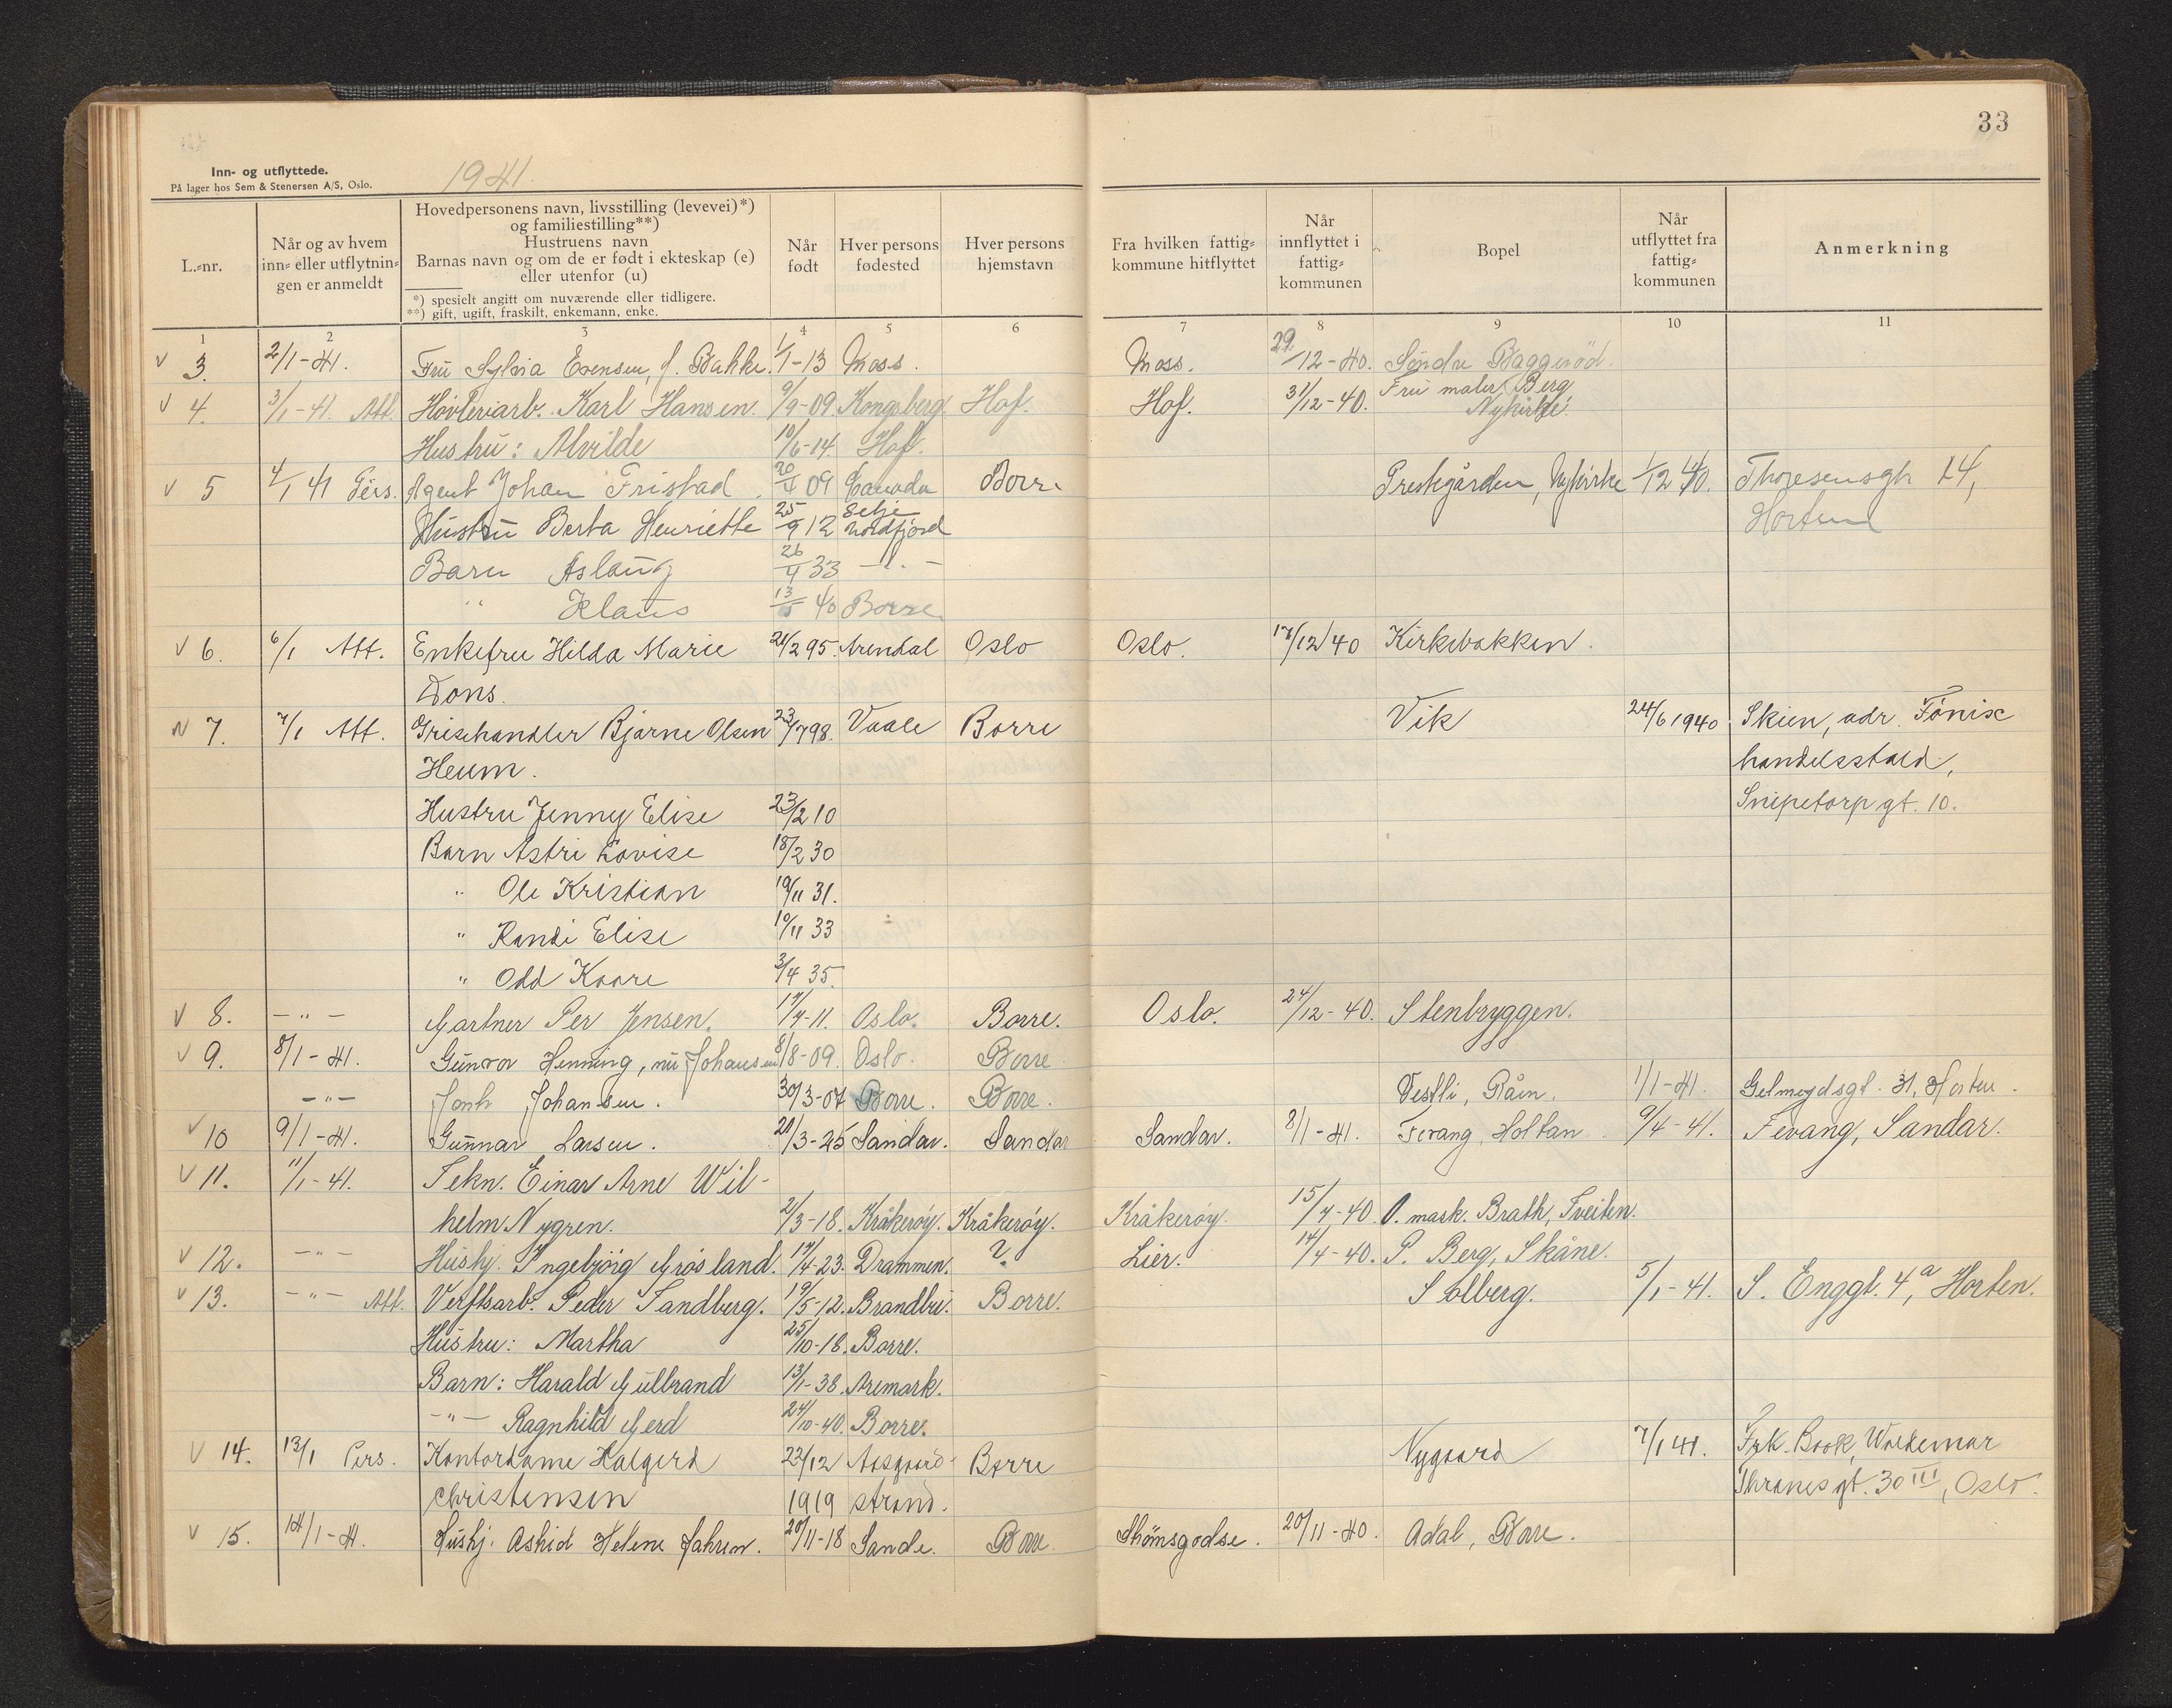 33
Inn- og utflyttede.
På lager hos Sem & Stenersen A/S, Oslo.
1941.
L.-nr.
Når og av hvem inn- eller utflytnin- gen er anmeldt
Hovedpersonens navn, livsstilling (levevei)*)
og familiestilling**)
Hustruens navn
Barnas navn og om de er født i ekteskap (e)
eller utenfor (u)
*) spesielt angitt om nuværende eller tidligere.
**) gift, ugift, fraskilt, enkemann, enke.
Når født
Hver persons fødested
Hver persons hjemstavn
Fra hvilken fattig- kommune hitflyttet
Når innflyttet i fattig- kommunen
Bopel
Når utflyttet fra fattig- kommunen
Anmerkning
1 2 3 4 5 6 7 8 9 10 11
v 3. 2/1-41. Fru Sylvia Evensen, f. Bakke. 1/1-13 Moss. Moss. 29/12-40. Søndre Baggerød.
v 4. 3/1-41. Att. Høvleriarb. Karl Hansen. 9/9-09. Kongsberg. Hof. Hof. 31/12-40. Fru maler Berg Nykirke.
Hustru: Alvilde 10/6-14. Hof.
v 5 4/1 41 Pers. Agent Johan Fristad. 20/4 09 Canada Borre Prestegården, Nykirke 1/12 40. Thoresensgt 14,
Hustru Berta Henriette 25/9 12 Selje Nordfjord Horten
Barn Aslaug 26/4 33 - " -
" Klaus 13/5 40 Borre
v 6. 6/1 Att. Enkefru Hilda Marie 21/2 95. Arendal Oslo Oslo. 17/12/40 Kirkebakken.
Dons.
v 7. 7/1 Att. Grisehandler Bjarne Olsen 23/7 98. Vaale Borre Vik 24/6 1940 Skien, adr. Fønix
Heum. handelsstald,
Hustru Jenny Elise 23/2 10 Snipetorpgt. 10.
Barn Astri Lovise 18/2 30
" Ole Kristian 19/11 31.
" Randi Elise 10/11 33
" Odd Kaare 3/4 35.
v 8. - " - Gartner Per Jensen. 17/4-11. Oslo. Borre. Oslo. 24/12-40. Stenbryggen.
v 9. 8/1-41. Gunvor Henning, nu Johansen 8/8-09. Oslo. Borre
- " - Johansen. 30/3-07 Borre. Borre. Vestli, Råen. 1/1-41. Gelmeydsgt. 31, Horten.
v 10 9/1-41. Gunnar Larsen. 21/3-25 Sandar. Sandar Sandar. 8/1-41. Fevang, Holtan. 9/4-41. Fevang, Sandar.
v 11. 11/1-41. Tekn. Einar Arne Wil-
helm Nygren. 21/3-18. Kråkerøy. Kråkerøy. Kråkerøy. 15/4-40. O. mask. Brath, Tveiten.
v 12. - " - Hushj. Ingebjørg Grøsland. 17/4-23. Drammen. ? Lier. 14/4-40. P. Berg, Skåne.
v 13. - " - Att. Verftsarb. Peder Sandberg. 19/5-12. Brandbu. Borre. Solberg. 5/1-41. S. Enggt. 4a, Horten.
Hustru: Martha 25/10-18. Borre.
Barn: Harald Gulbrand 13/1-38. Aremark.
- " - Ragnhild Gerd 24/10-40. Borre.
v 14. 13/1 Pers. Kontordame Halgerd 22/12 Aasgaard- Borre Nygaard 7/1 41. Frk. Book, Waldemar
Christensen 1919 strand. Thranes gt. 30 III, Oslo.
v 15. 14/1-41. Hushj. Astrid Helene Jahren. 20/11-18 Sande. Borre Strømsgodse. 20/11-40. Adal, Borre.